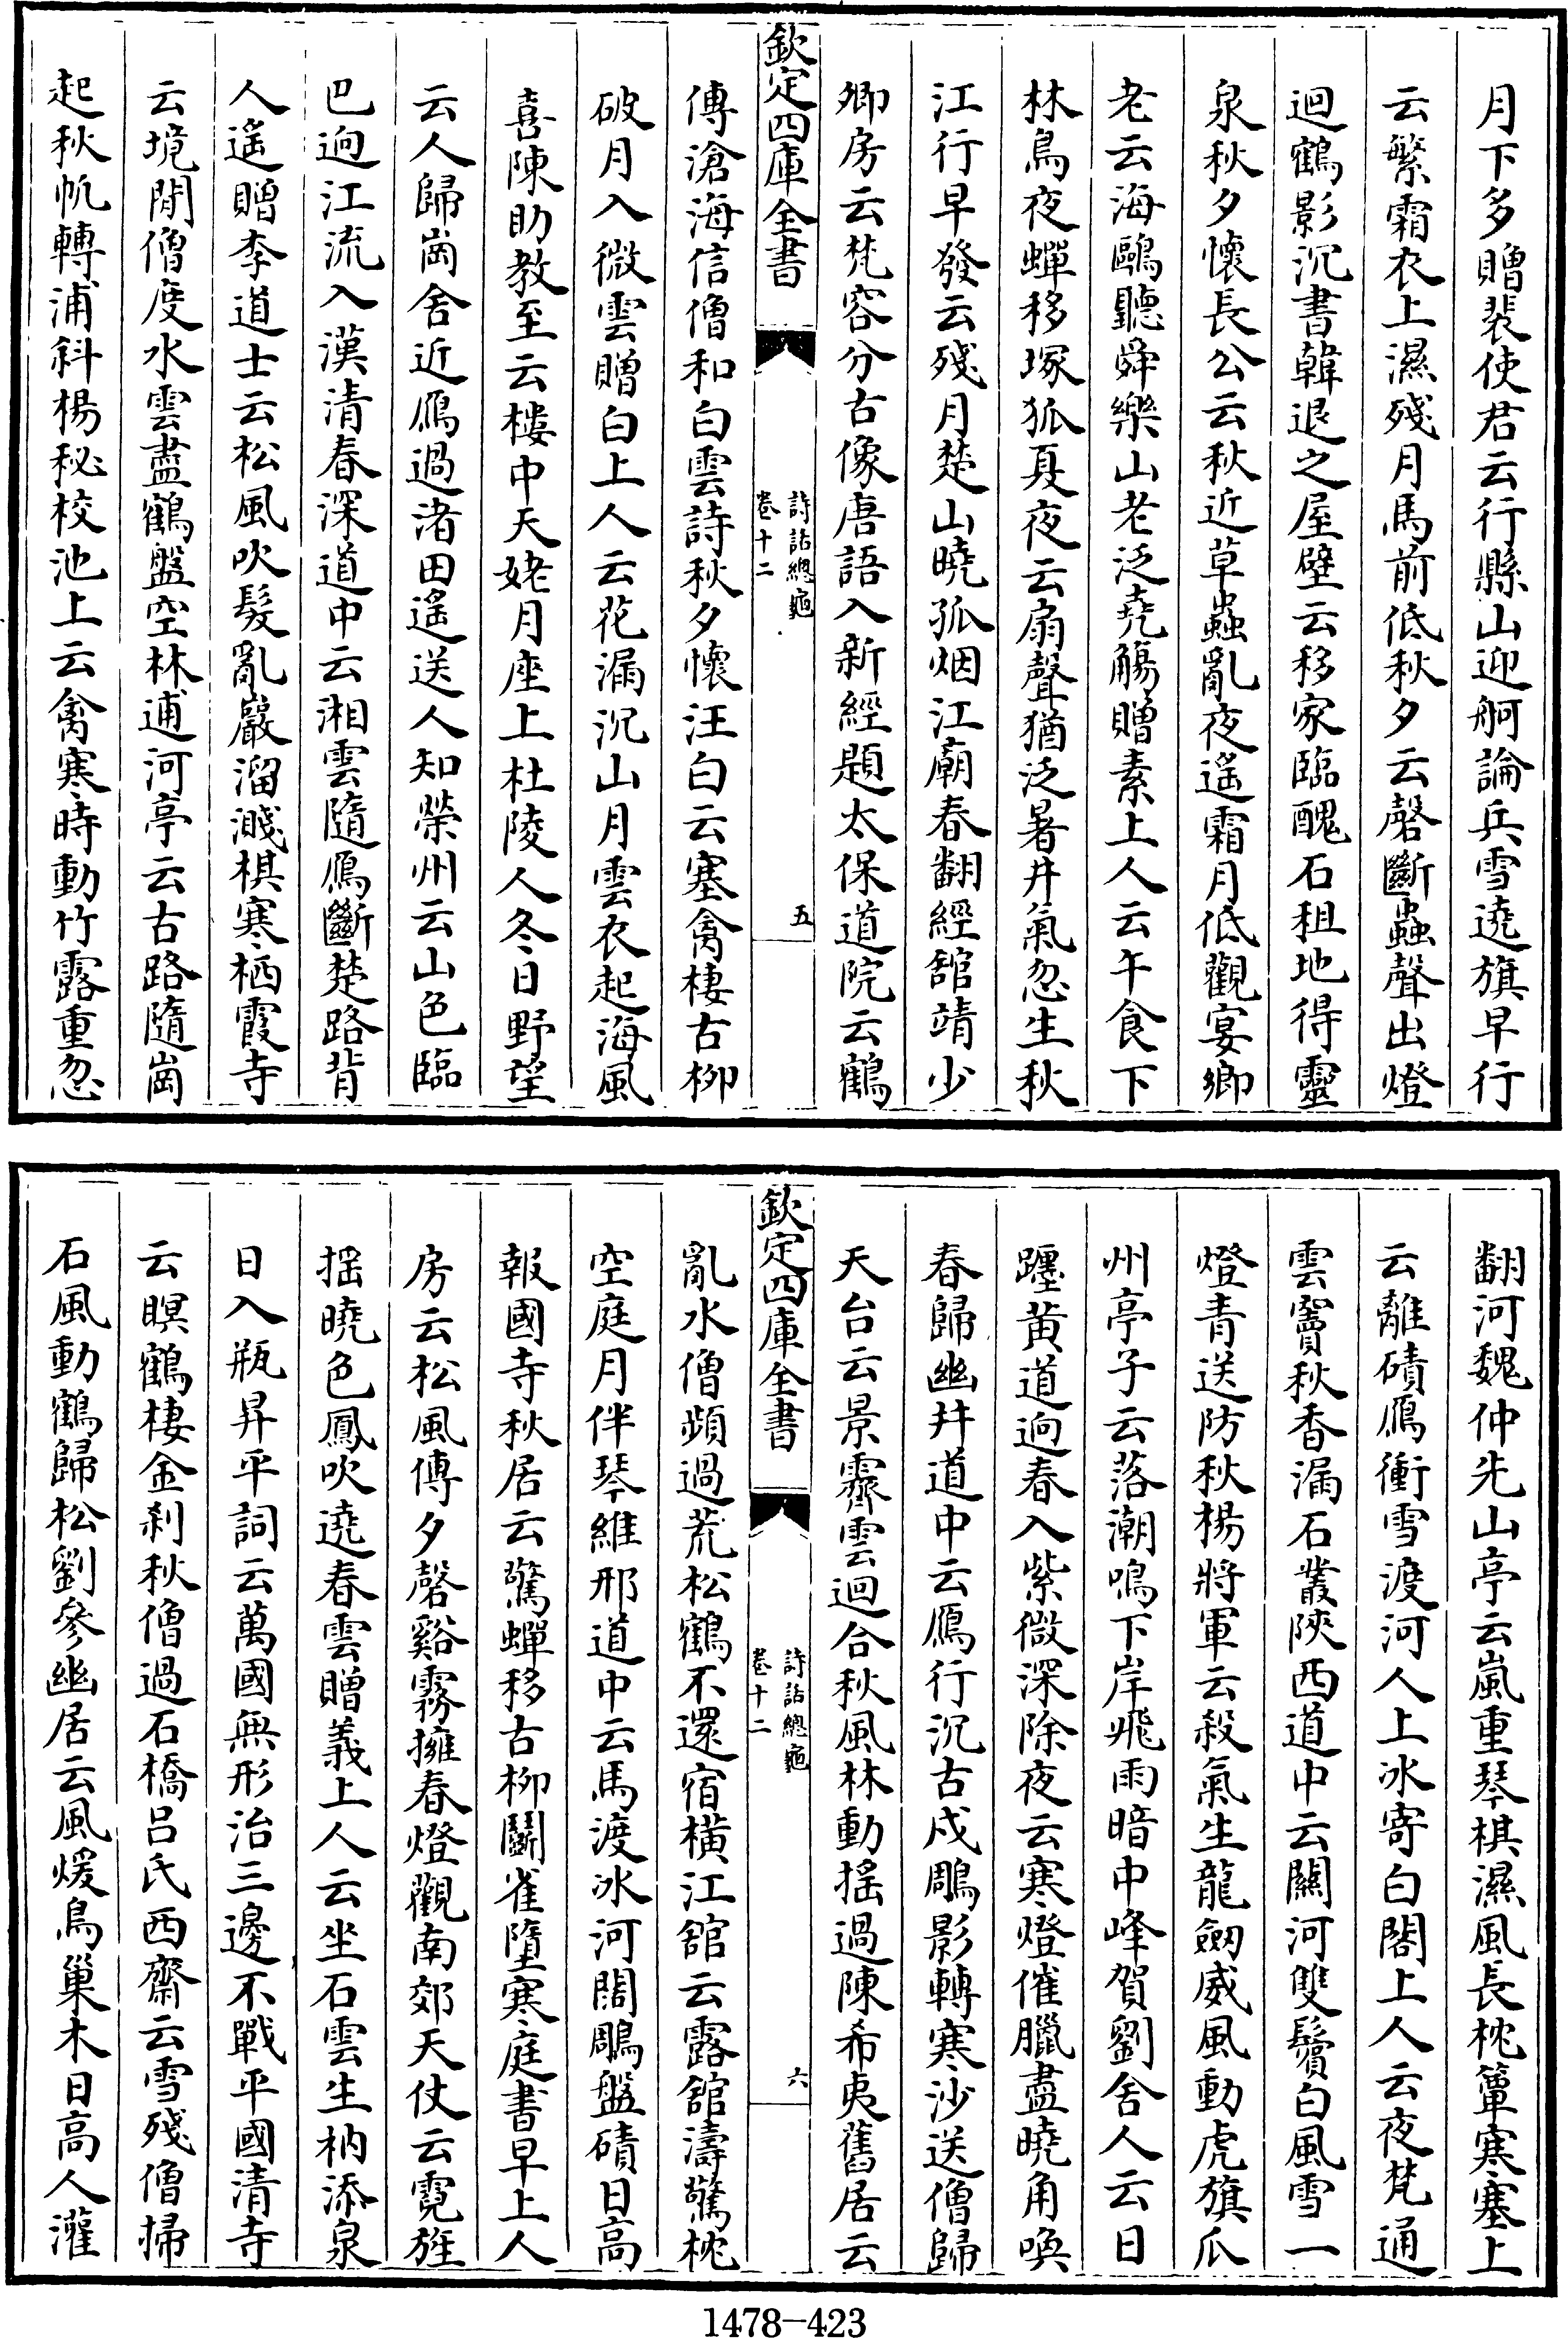 月下多贈裴使君云行縣山迎舸論兵雪遶旗早行
云繁霜衣上濕殘月馬前低秋夕云磬斷蟲聲出燈
迴鶴影沉書韓退之屋壁云移家臨醜石租地得靈
泉秋夕懷長公云秋近草蟲亂夜遙霜月低觀宴鄉
老云海鷗聽舜樂山老泛堯觴贈素上人云午食下
林鳥夜蟬移塚狐夏夜云扇聲猶泛暑井氣忽生秋
江行早發云殘月楚山曉孤烟江廟春翻經館靖少
卿房云梵容分古像唐語入新經題太保道院云鶴
欽定四庫全書
詩話總龜
卷十二
五
傳滄海信僧和白雲詩秋夕懷汪白云塞禽棲古柳
破月入微雲贈白上人云花漏沉山月雲衣起海風
喜陳助教至云樓中天姥月座上杜陵人冬日野望
云人歸崗舍近鴈過渚田遙送人知榮州云山色臨
巴逈江流入漢清春深道中云湘雲隨鴈斷楚路背
人遙贈李道士云松風吹髮亂巖溜濺棋寒栖霞寺
云境閒僧度水雲盡鶴盤空林逋河亭云古路隨崗
起秋帆轉浦斜楊秘校池上云禽寒時動竹露重忽
翻河魏仲先山亭云嵐重琴棋濕風長枕簟寒塞上
云離磧鴈衝雪渡河人上冰寄白閣上人云夜梵通
雲竇秋香漏石叢陜西道中云關河雙鬢白風雪一
燈青送防秋楊將軍云殺氣生龍劒威風動虎旗瓜
州亭子云落潮鳴下岸飛雨暗中峰賀劉舍人云日
躔黃道逈春入紫微深除夜云寒燈催臘盡曉角喚
春歸幽井道中云鴈行沉古戍鵰影轉寒沙送僧歸
天台云景霽雲迴合秋風林動摇過陳希夷舊居云
欽定四庫全書
詩話總龜
卷十二
六
亂水僧頻過荒松鶴不還宿橫江館云露館濤驚枕
空庭月伴琴維邢道中云馬渡冰河闊鵰盤磧日高
報國寺秋居云驚蟬移古柳鬭雀墮寒庭書早上人
房云松風傳夕磬谿霧擁春燈觀南郊天仗云霓旌
摇曉色鳳吹遶春雲贈義上人云坐石雲生衲添泉
日入瓶昇平詞云萬國無形治三邊不戰平國清寺
云暝鶴棲金刹秋僧過石橋呂氏西齋云雪殘僧掃
石風動鶴歸松劉參幽居云風煖鳥巢木日高人灌
1478-423